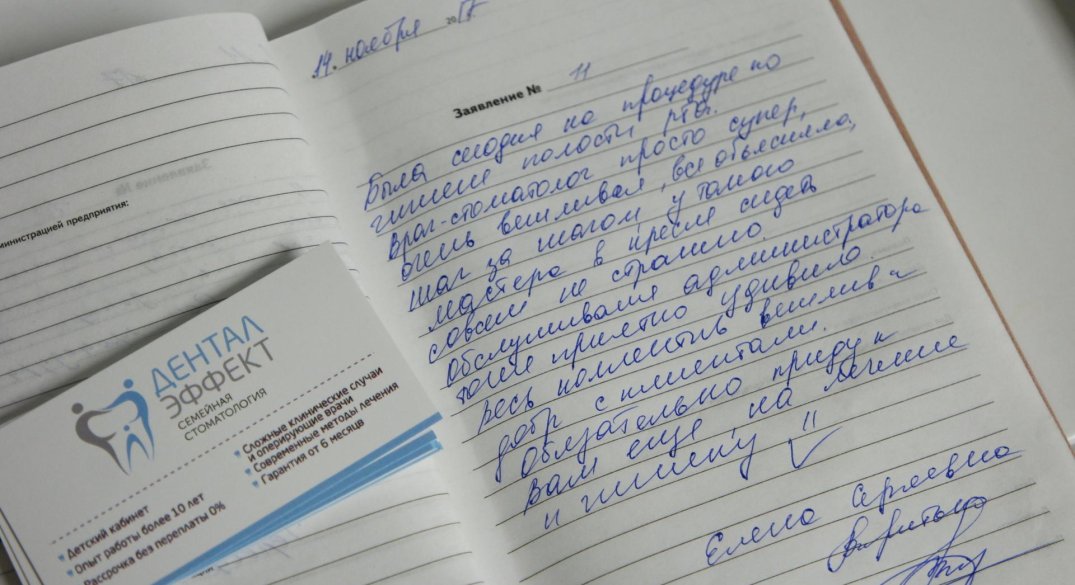 министрацией предприятия:
Заявление №
14. ноября 2017.
Заявление № 11
Была сегодня на процедуре по
гигиене полости рта.
Врач-стоматолог просто супер,
очень вежливая, все объясняла,
шаг за шагом, у такого
мастера в кресле сидеть
совсем не страшно
Обслуживания администратора
тоже приятно удивило.
Весь коллектив вежлив и
добр с клиентами.
Обязательно приду к
Вам еще, на лечение
и гигиену !!
Елена Сергеевна
ДЕНТАЛ
ЭФФЕКТ
СЕМЕЙНАЯ
СТОМАТОЛОГИЯ
Сложные клинические случаи
и оперирующие врачи
Современные методы лечения
Гарантия от 6 месяцв
Детский кабинет
Опыт работы более 10 лет
Рассрочка без переплаты 0%